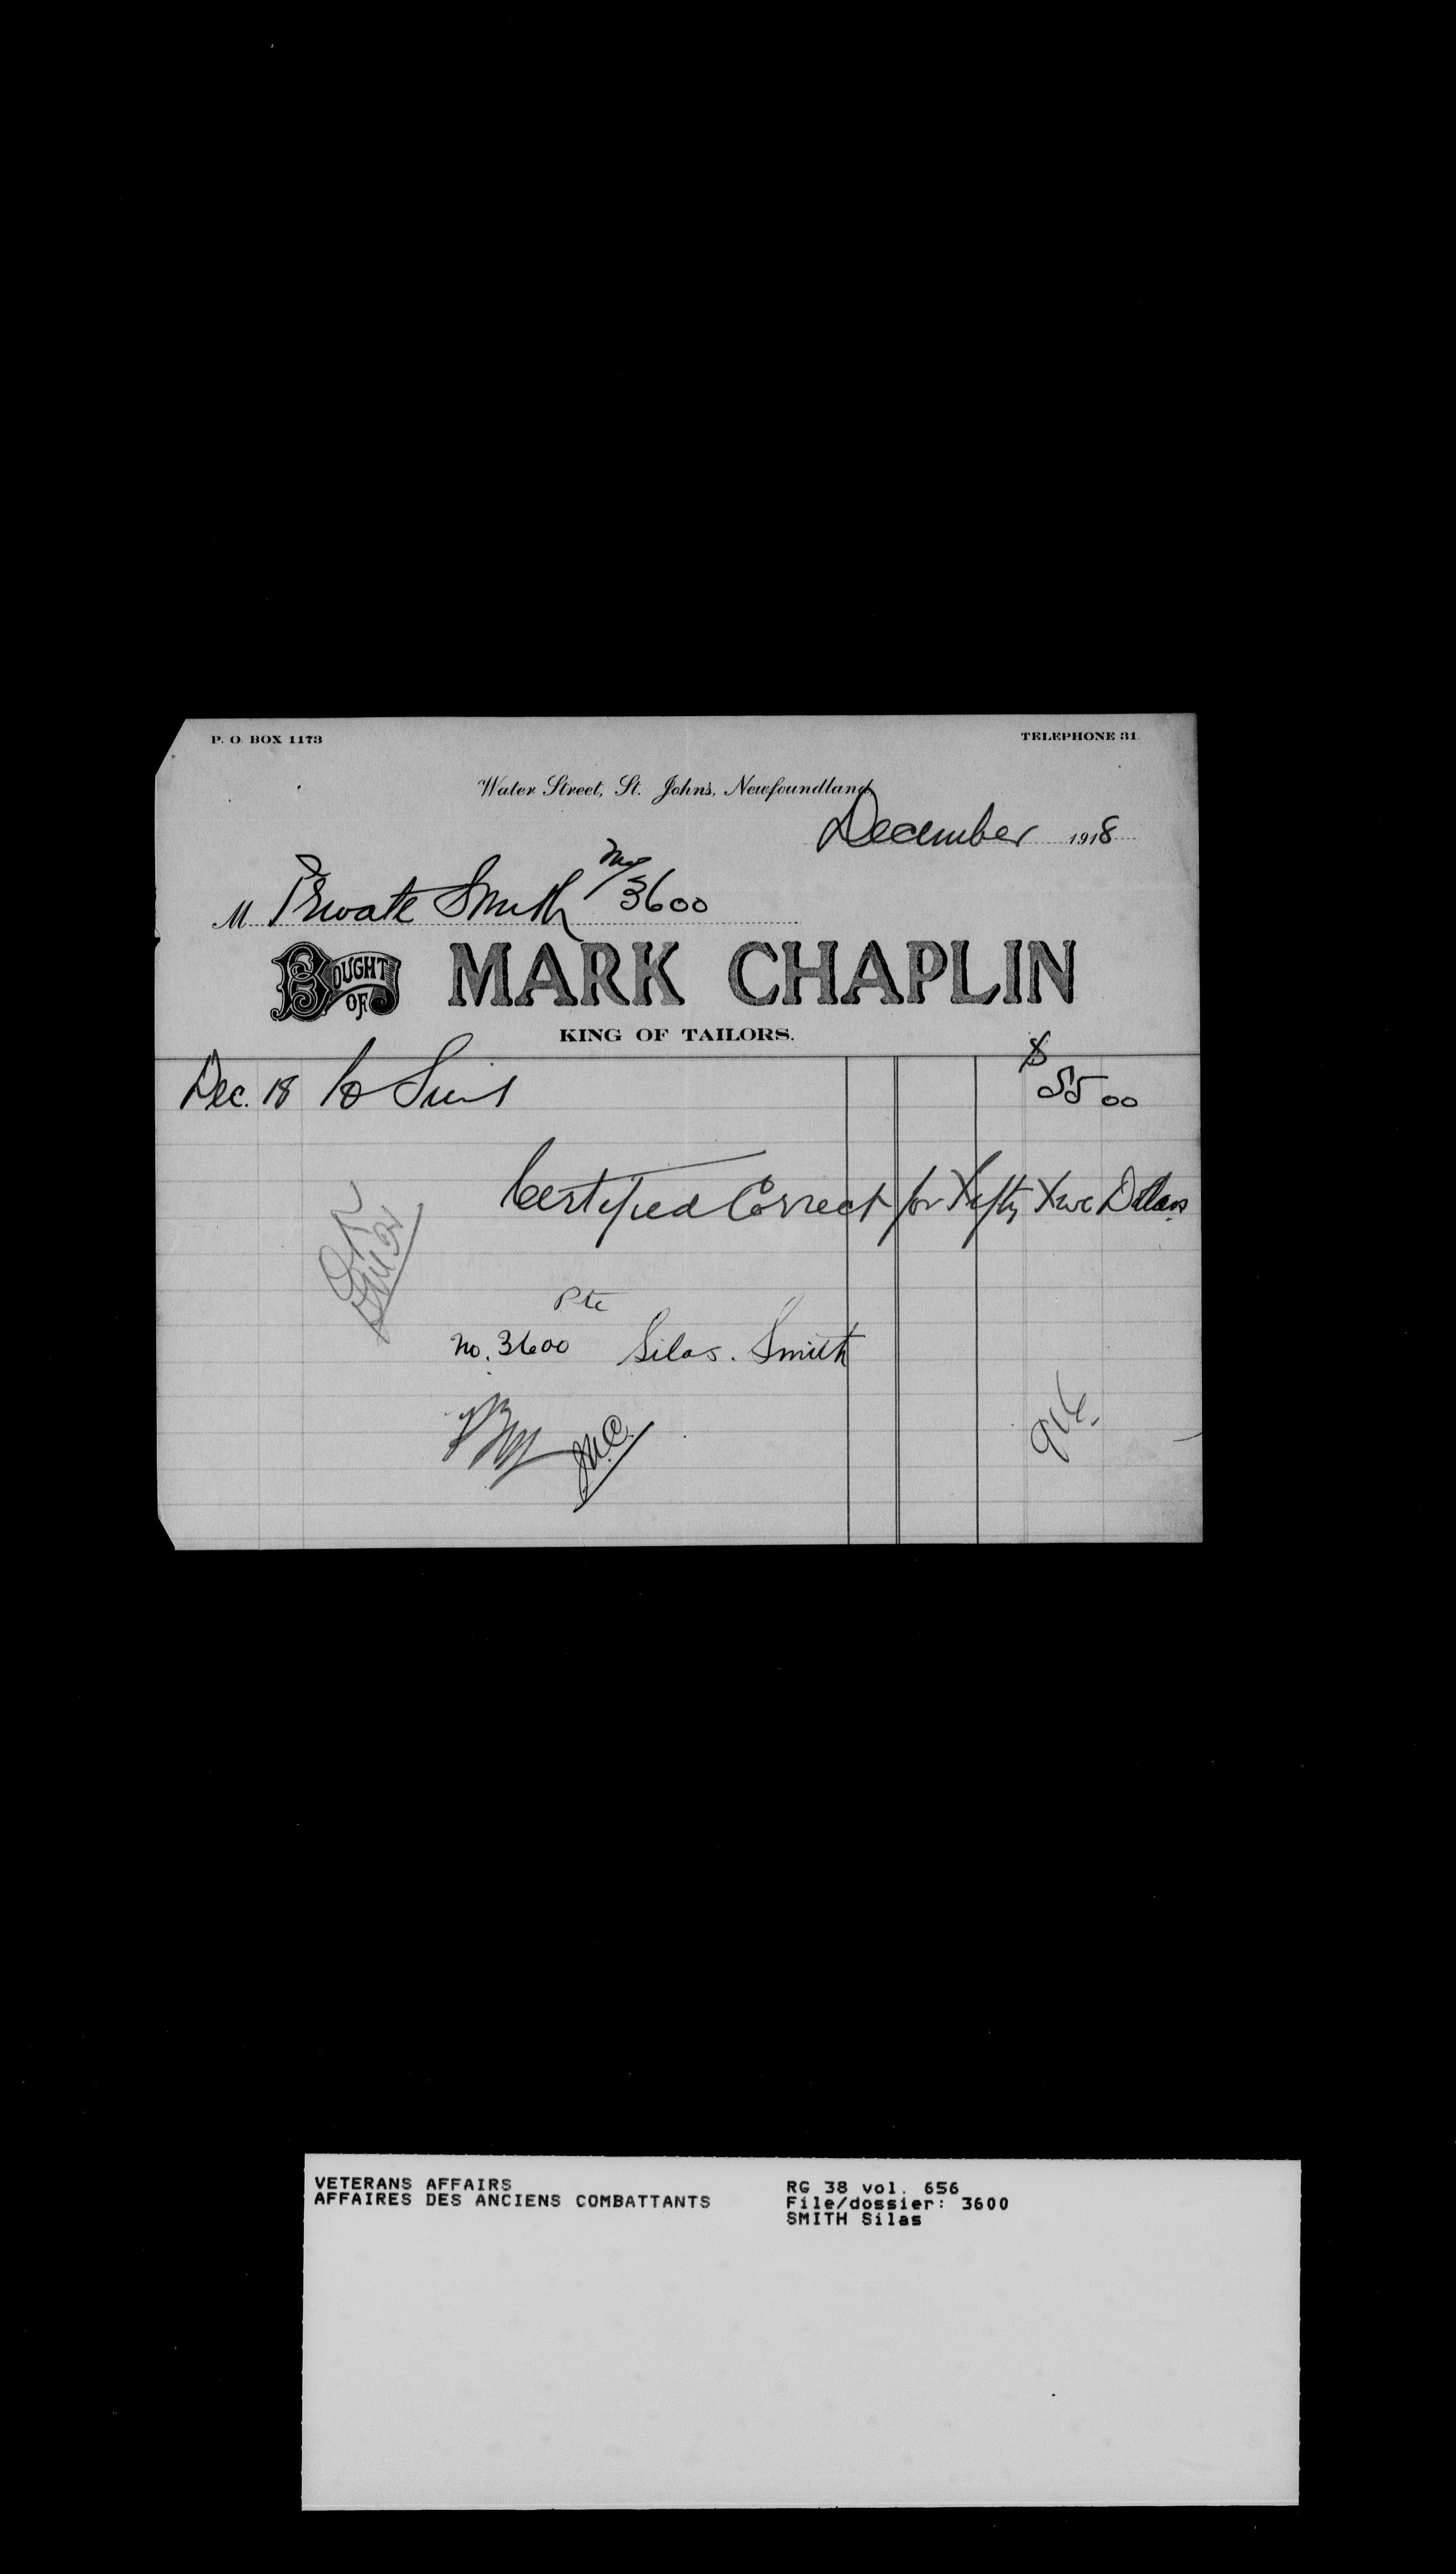 P. O. BOX 1173
TELEPHONE 31
Water Street, St. John's, Newfoundland
December 1918
M Private Smith No 3600
BOUGHT OF MARK CHAPLIN
KING OF TAILORS.
Dec. 18 To Suit $ 55 00
Certified Correct for Fifty Five Dollars
OK
Pte
No. 3600 Silas. Smith
VETERANS AFFAIRS
AFFAIRES DES ANCIENS COMBATTANTS
RG 38 vol. 656
File/dossier: 3600
SMITH Silas